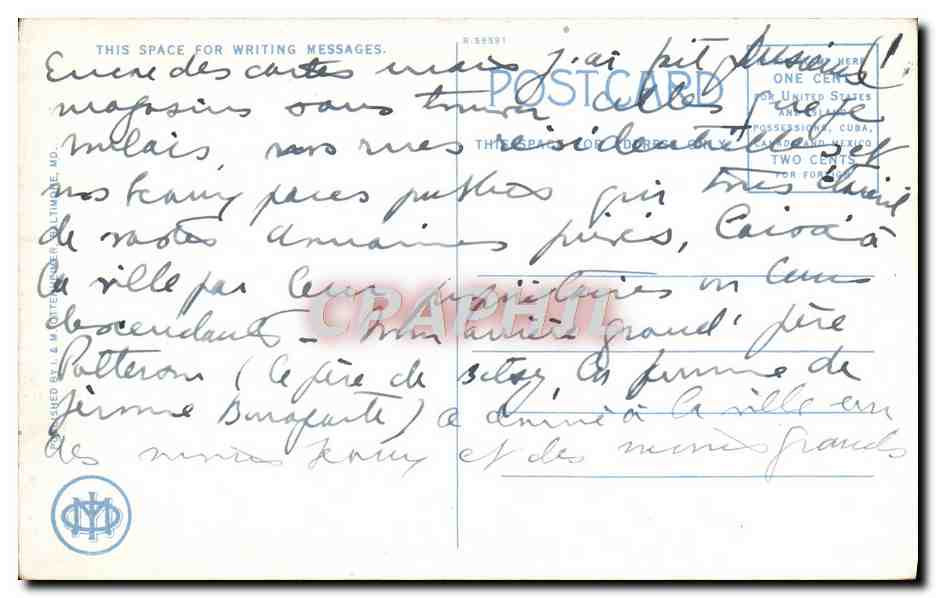 THIS SPACE FOR WRITING MESSAGES.
R-59591
POST CARD
THIS SPACE FOR ADDRESS ONLY
ONE CENT
FOR UNITED STATES
AND ISLAND
POSSESSIONS, CUBA,
CANADA AND MEXICO
TWO CENTS
FOR FOREIGN
PUBLISHED BY I. & M. OTTENHEIMER, BALTIMORE, MD.
Encore des cartes mais j'ai fait plusieurs
magasins sans trouver celles que je
voulais, nos rues résidentielles et
nos beaux parcs publics qui tous étaient
de vastes domaines privés, laissé à
la ville par leurs propriétaires ou leurs
descendants - mon arrière grand' père
Patterson (le père de Betsy, la femme de
Jérome Bonaparte) a donné à la ville un
des moins beaux et des moins grands
CPAPHIL